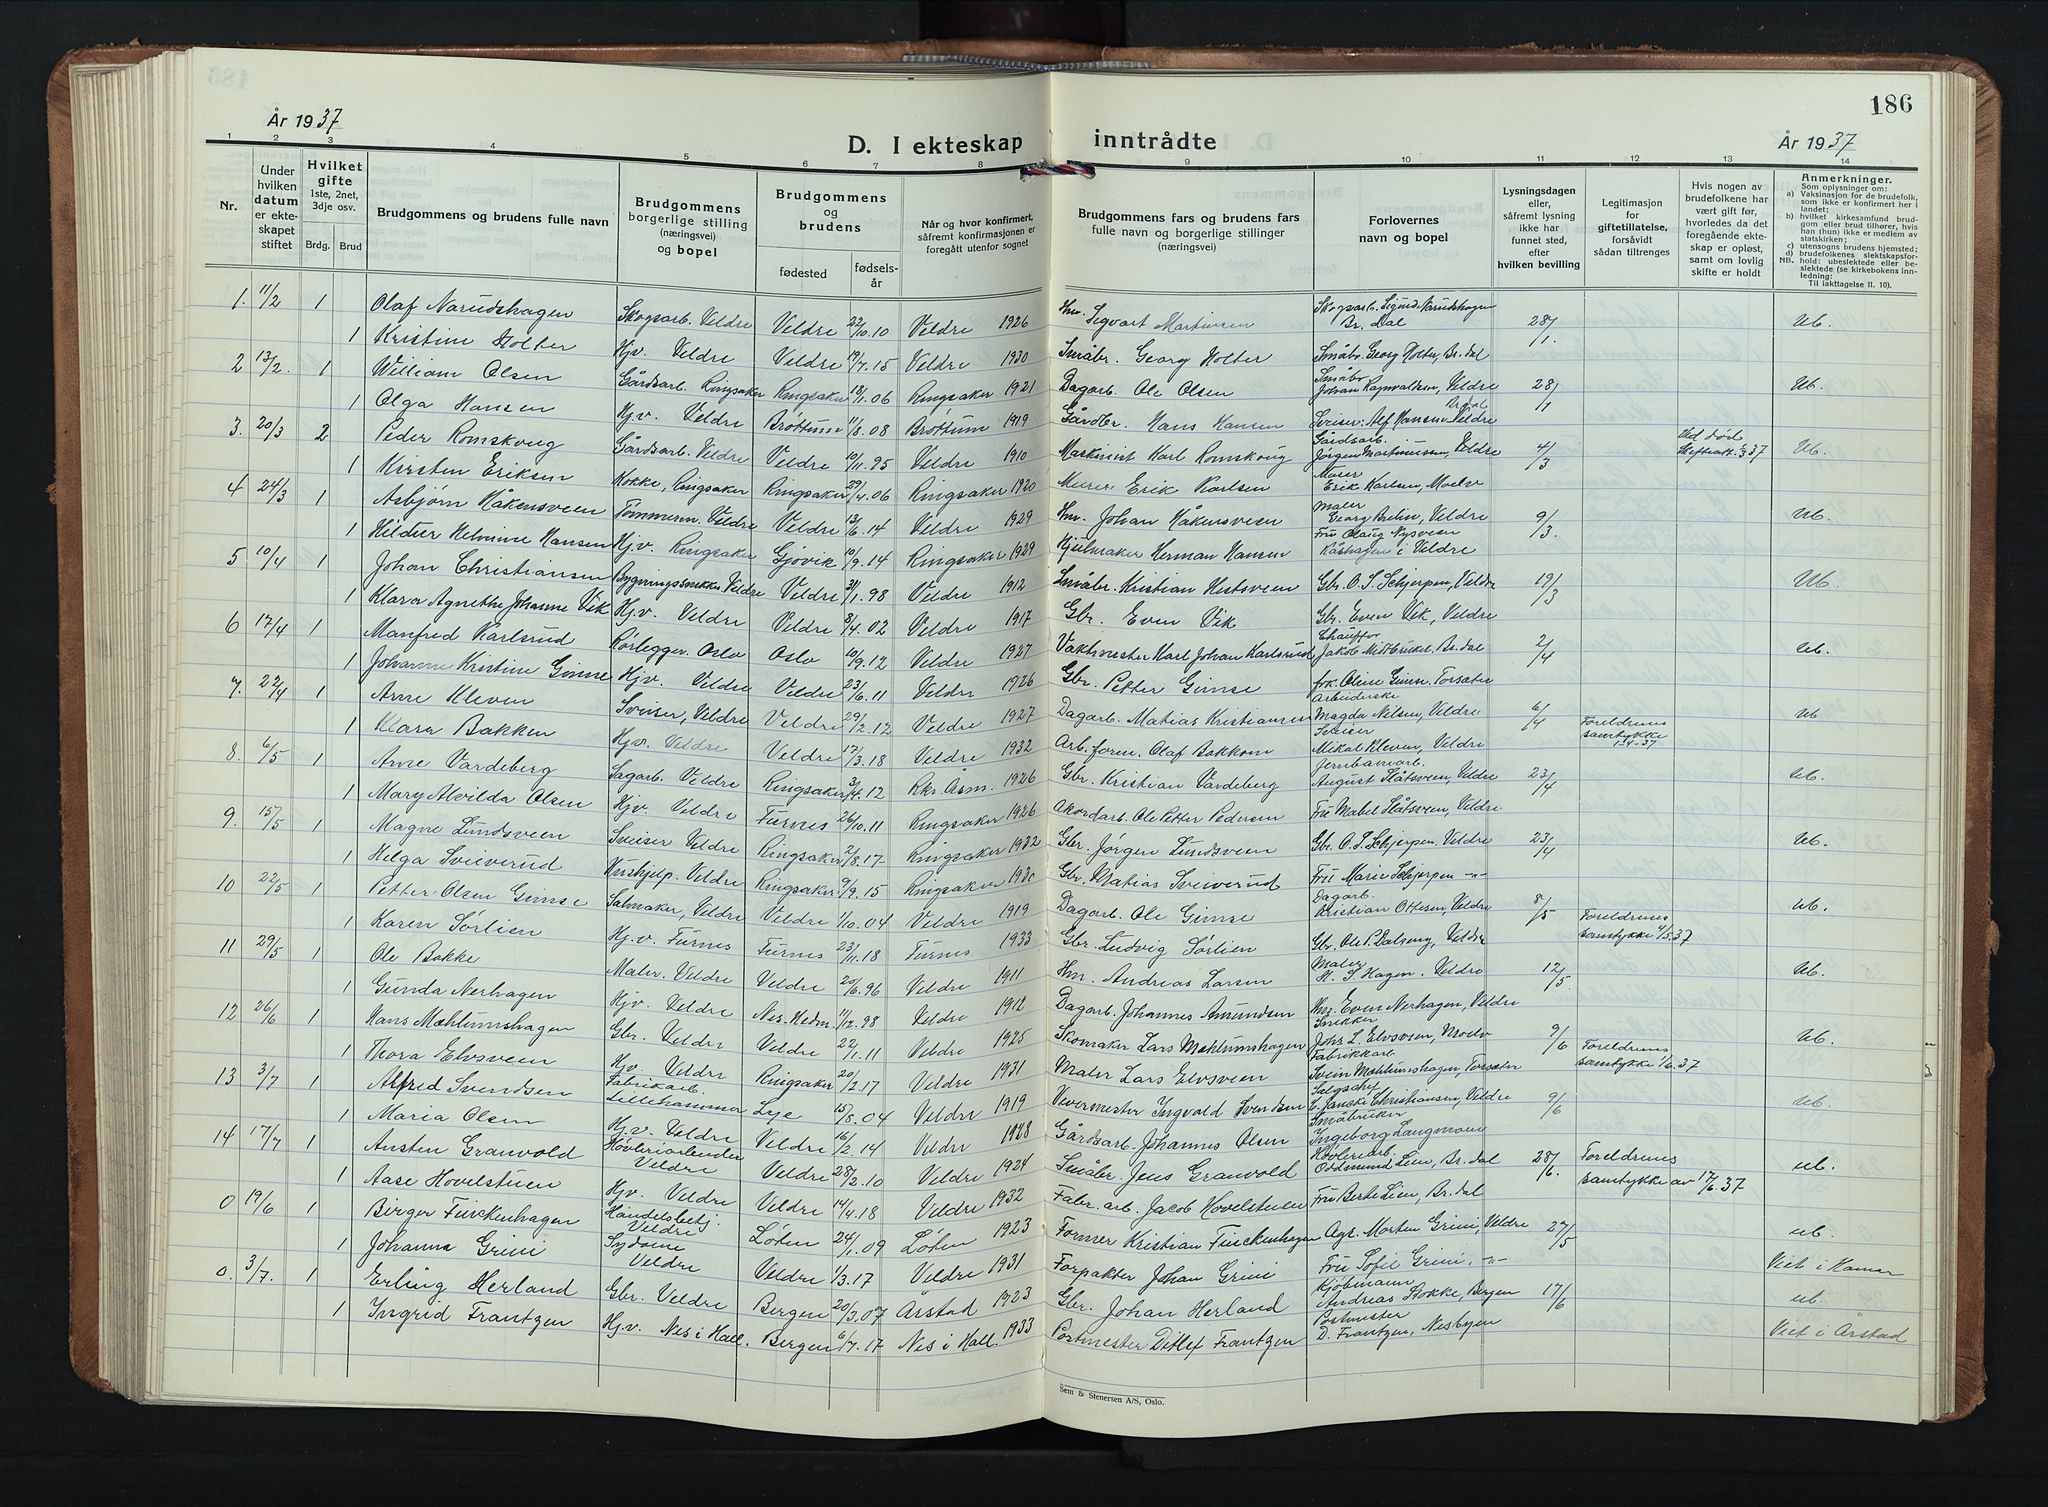 186
År 1937
D. I ekteskap inntrådte
År 1937
1 2 3 4 5 6 7 8 9 10 11 12 13 14
Nr.
Under hvilken datum er ekteskapet stiftet
Hvilket gifte 1ste, 2net, 3dje osv.
Brdg. Brud
Brudgommens og brudens fulle navn
Brudgommens borgerlige stilling (næringsvei) og bopel
Brudgommens og brudens
fødested
fødselsår
Når og hvor konfirmert, såfremt konfirmasjonen er foregått utenfor sognet
Brudgommens fars og brudens fars fulle navn og borgerlige stillinger (næringsvei)
Forlovernes navn og bopel
Lysningsdagen eller, såfremt lysning ikke har funnet sted, efter hvilken bevilling
Legitimasjon for giftetillatelse, forsåvidt sådan tiltrenges
Hvis nogen av brudefolkene har vært gift før, hvorledes da det foregående ekteskap er opløst, samt om lovlig skifte er holdt
Anmerkninger.
Som oplysninger om:
a) Vaksinasjon for de brudefolk, som ikke er konfirmert her i landet;
b) hvilket kirkesamfund brudgom eller brud tilhører, hvis han (hun) ikke er medlem av statskirken;
c) utensogns brudens hjemsted;
d) brudefolkenes slektskapsforhold: ubeslektede eller beslektede (se kirkebokens innledning:
NB.
Til iakttagelse II. 10).
1. 11/2 1 Olaf Narudshagen Skogsarb. Veldre Veldre 22/10.10 Veldre 1926 Hm. Segvart Martinsen Skogsarb. Sigurd Narudshagen Br. Dal 28/1. Ub.
1 Kristine Holter Hjv. Veldre Veldre 19/7.15 Veldre 1930 Småbr. Georg Holter Småbr. Georg Holter, Br. dal
2 13/2. 1 William Olsen Gårdsarb. Ringsaker Ringsaker 18/1.06 Ringsaker 1921 Dagarb. Ole Olsen Småbr. Johan Ragnvaldsen, Veldre 28/1 Ub.
1 Olga Hansen Hj.v. Veldre Brøttum 11/8.08 Brøttum 1919 Gårdbr. Hans Hansen Sveiser Alf Hansen Veldre
3. 20/3 2 Peder Romskoug Gårdsarb. Veldre Veldre 10/11.95 Veldre 1910 Maskinist Karl Romskoug Gårdsarb. Jørgen Martinussen, Veldre 4/3 Ved død Ub.
1 Kirsten Eriksen Kokke, Ringsaker Ringsaker 29/4.06 Ringsaker 1920 Murer Erik Karlsen Murer Erik Karlsen, Moelv
4 24/3 1 Asbjørn Håkensveen Tømmerm. Veldre Veldre 13/6.14 Veldre 1929 Hm. Johan Håkensveen Maler Georg Brelin, Veldre 9/3. Ub.
1 Hildur Helmine Hansen Hj.v. Ringsaker Gjøvik 10/9.14 Ringsaker 1929 Hjulmaker Herman Hansen Fru Olaug Nysveen Kåshagen i Veldre
5 10/4 1 Johan Christiansen Bygningssnekker Veldre Veldre 31/1.98 Veldre 1912 Småbr. Kristian Hestsveen Gbr. O. S. Schjerpen, Veldre 19/3 Ub.
1 Klara Agnethe Johanne Vik Hj.v. Veldre Veldre 8/4.02 Veldre 1917 Gbr. Even Vik Gbr. Even Vik, Veldre
6 17/4 1 Manfred Karlsrud Rørlegger. Oslo Oslo 10/9.12 Veldre 1927 Vaktmester Karl Johan Karlsrud Chauffør Jakob Midtbruket, Br. dal 2/4 Ub.
1 Johanne Kristine Gimse Hjv. Veldre Veldre 23/6.11 Veldre 1926 Gbr. Petter Gimse frk. Oline Gimse. Torsæter
7. 22/4 1 Arne Kleven Sveiser, Veldre Veldre 29/2.12 Veldre 1927 Dagarb. Matias Kristiansen Arbeiderske Magda Nilsen, Veldre 6/4 Foreldrenes samtykke 1-4-37 Ub
1 Klara Bakken Hjv. Veldre Veldre 17/3.18 Veldre 1932 Arb.form. Olaf Bakkom Sveiser Mikal Kleven, Veldre
8. 6/5 1 Arne Vardeberg Sagarb. Veldre Ringsaker 3/4.12 Rkr. Åsm. 1926 Gbr. Kristian Vardeberg Jernbanearb. August Slåtsveen, Veldre 23/4 Ub.
1 Mary Alvilda Olsen Hjv. Veldre Furnes 26/10.11 Ringsaker 1926 Akordarb. Ole Petter Pedersen Fru Mabel Slåtsveen, Veldre
9. 15/5 1 Magne Lundsveen Sveiser Veldre Ringsaker 2/8.17 Ringsaker 1932 Gbr. Jørgen Lundsveen Gbr. O. S. Schjerpen. Veldre 23/4 Ub.
1 Helga Sveiverud Hushjelp. Veldre Ringsaker 9/9.15 Ringsaker 1930 Gbr. Matias Sveiverud Fru Marie Schjerpen -"-
10 22/5 1 Petter Olsen Gimse Salmaker, Veldre Veldre 1/10.04 Veldre 1919 Dagarb. Ole Gimse Dagarb. Kristian Ottesen, Veldre 8/5 Foreldrenes samtykke 4/5.37 Ub.
1 Karen Sørlien Hj.v. Furnes Furnes 23/11.18 Furnes 1933 Gbr. Ludvig Sørlien Gbr. Ole P. Dalseng, Veldre
11 29/5 1 Ole Bakke Maler. Veldre Veldre 20/6.96 Veldre 1911 Hm. Andreas Larsen Maler H. S. Hagen. Veldre 12/5. Ub.
1 Gunda Nerhagen Hjv. Veldre Nes. Hedm. 11/12.98 Veldre 1912 Dagarb. Johannes Amundsen Hm. Even Nerhagen, Veldre
12 26/6 1 Hans Mæhlumshagen Gbr. Veldre Veldre 22/1.11 Veldre 1925 Skomaker Lars Mæhlumshagen Snekker Johs L. Elvsveen, Moelv 9/6 Foreldrenes samtykke 1/6.37 Ub.
1 Thora Elvsveen Hjv Veldre Ringsaker 20/2.17 Veldre 1931 Maler Lars Elvsveen Fabrikkarb. Svein Mæhlumshagen, Torsæter
13 3/7 1 Alfred Svendsen Fabrikarb. Lillehammer Leje 15/8.04 Veldre 1919 Vevermester Ingvald Svendsen Salgschef Christiansen, Veldre 9/6 Ub.
1 Maria Olsen Hj.v. Veldre Veldre 16/2.14 Veldre 1928 Gårdsarb. Johannes Olsen Småbruker Ingeborg Langmoen
14 17/7 1 Austen Granvold Høvleriarbeider Veldre Veldre 28/2.10 Veldre 1924 Småbr. Jens Granvold Høvleriarb. Oddmund Lien, Br. dal 28/6. Foreldrenes samtykke av 17/6.37 ub.
1 Aase Hovelstuen Hjv. Veldre Veldre 14/4.18 Veldre 1932 Fabr. arb. Jacob Hovelstuen Fru Berte Lien, Br. dal
0 19/6 1 Birger Furckenhagen Handelsbetj. Veldre Løten 24/1.09 Løten 1923 Former Kristian Furckenhagen Agr. Morten Grini, Veldre 27/5 ub.
1 Johanna Grini Sydame Veldre Veldre 1/3.17 Veldre 1931 Forpakter Johan Grini Fru Sofie Grini, -"- Viet i Hamar
0. 3/7. 1 Erling Herland Gbr. Veldre Bergen 20/3.07 Årstad 1923 Gbr. Johan Herland Kjøbmann Andreas Stokke, Bergen 17/6 ub.
1 Ingrid Frantzen Hj.v. Nes i Hall. Bergen 6/7.17 Nes i Hall. 1933 Postmester Ditlef Frantzen Postmester D. Frantzen, Nesbyen Viet i Årstad
Sem & Stenersen A/S, Oslo.